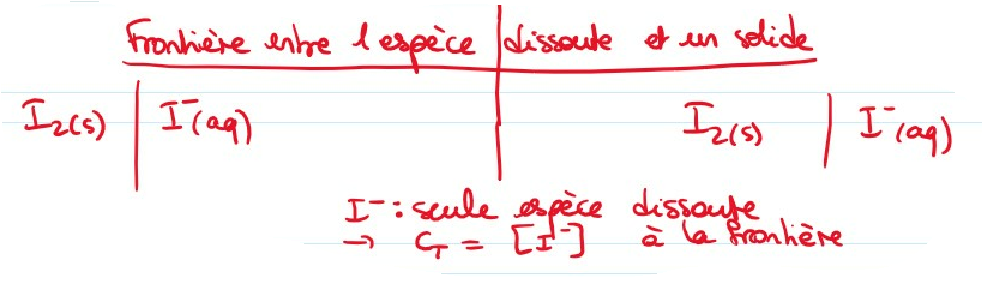 Frontière entre 1 espèce dissoute et un solide
I₂(s) | I⁻(aq) I₂(s) | I⁻(aq)
I⁻ : seule espèce dissoute
→ C_T = [I⁻] à la frontière